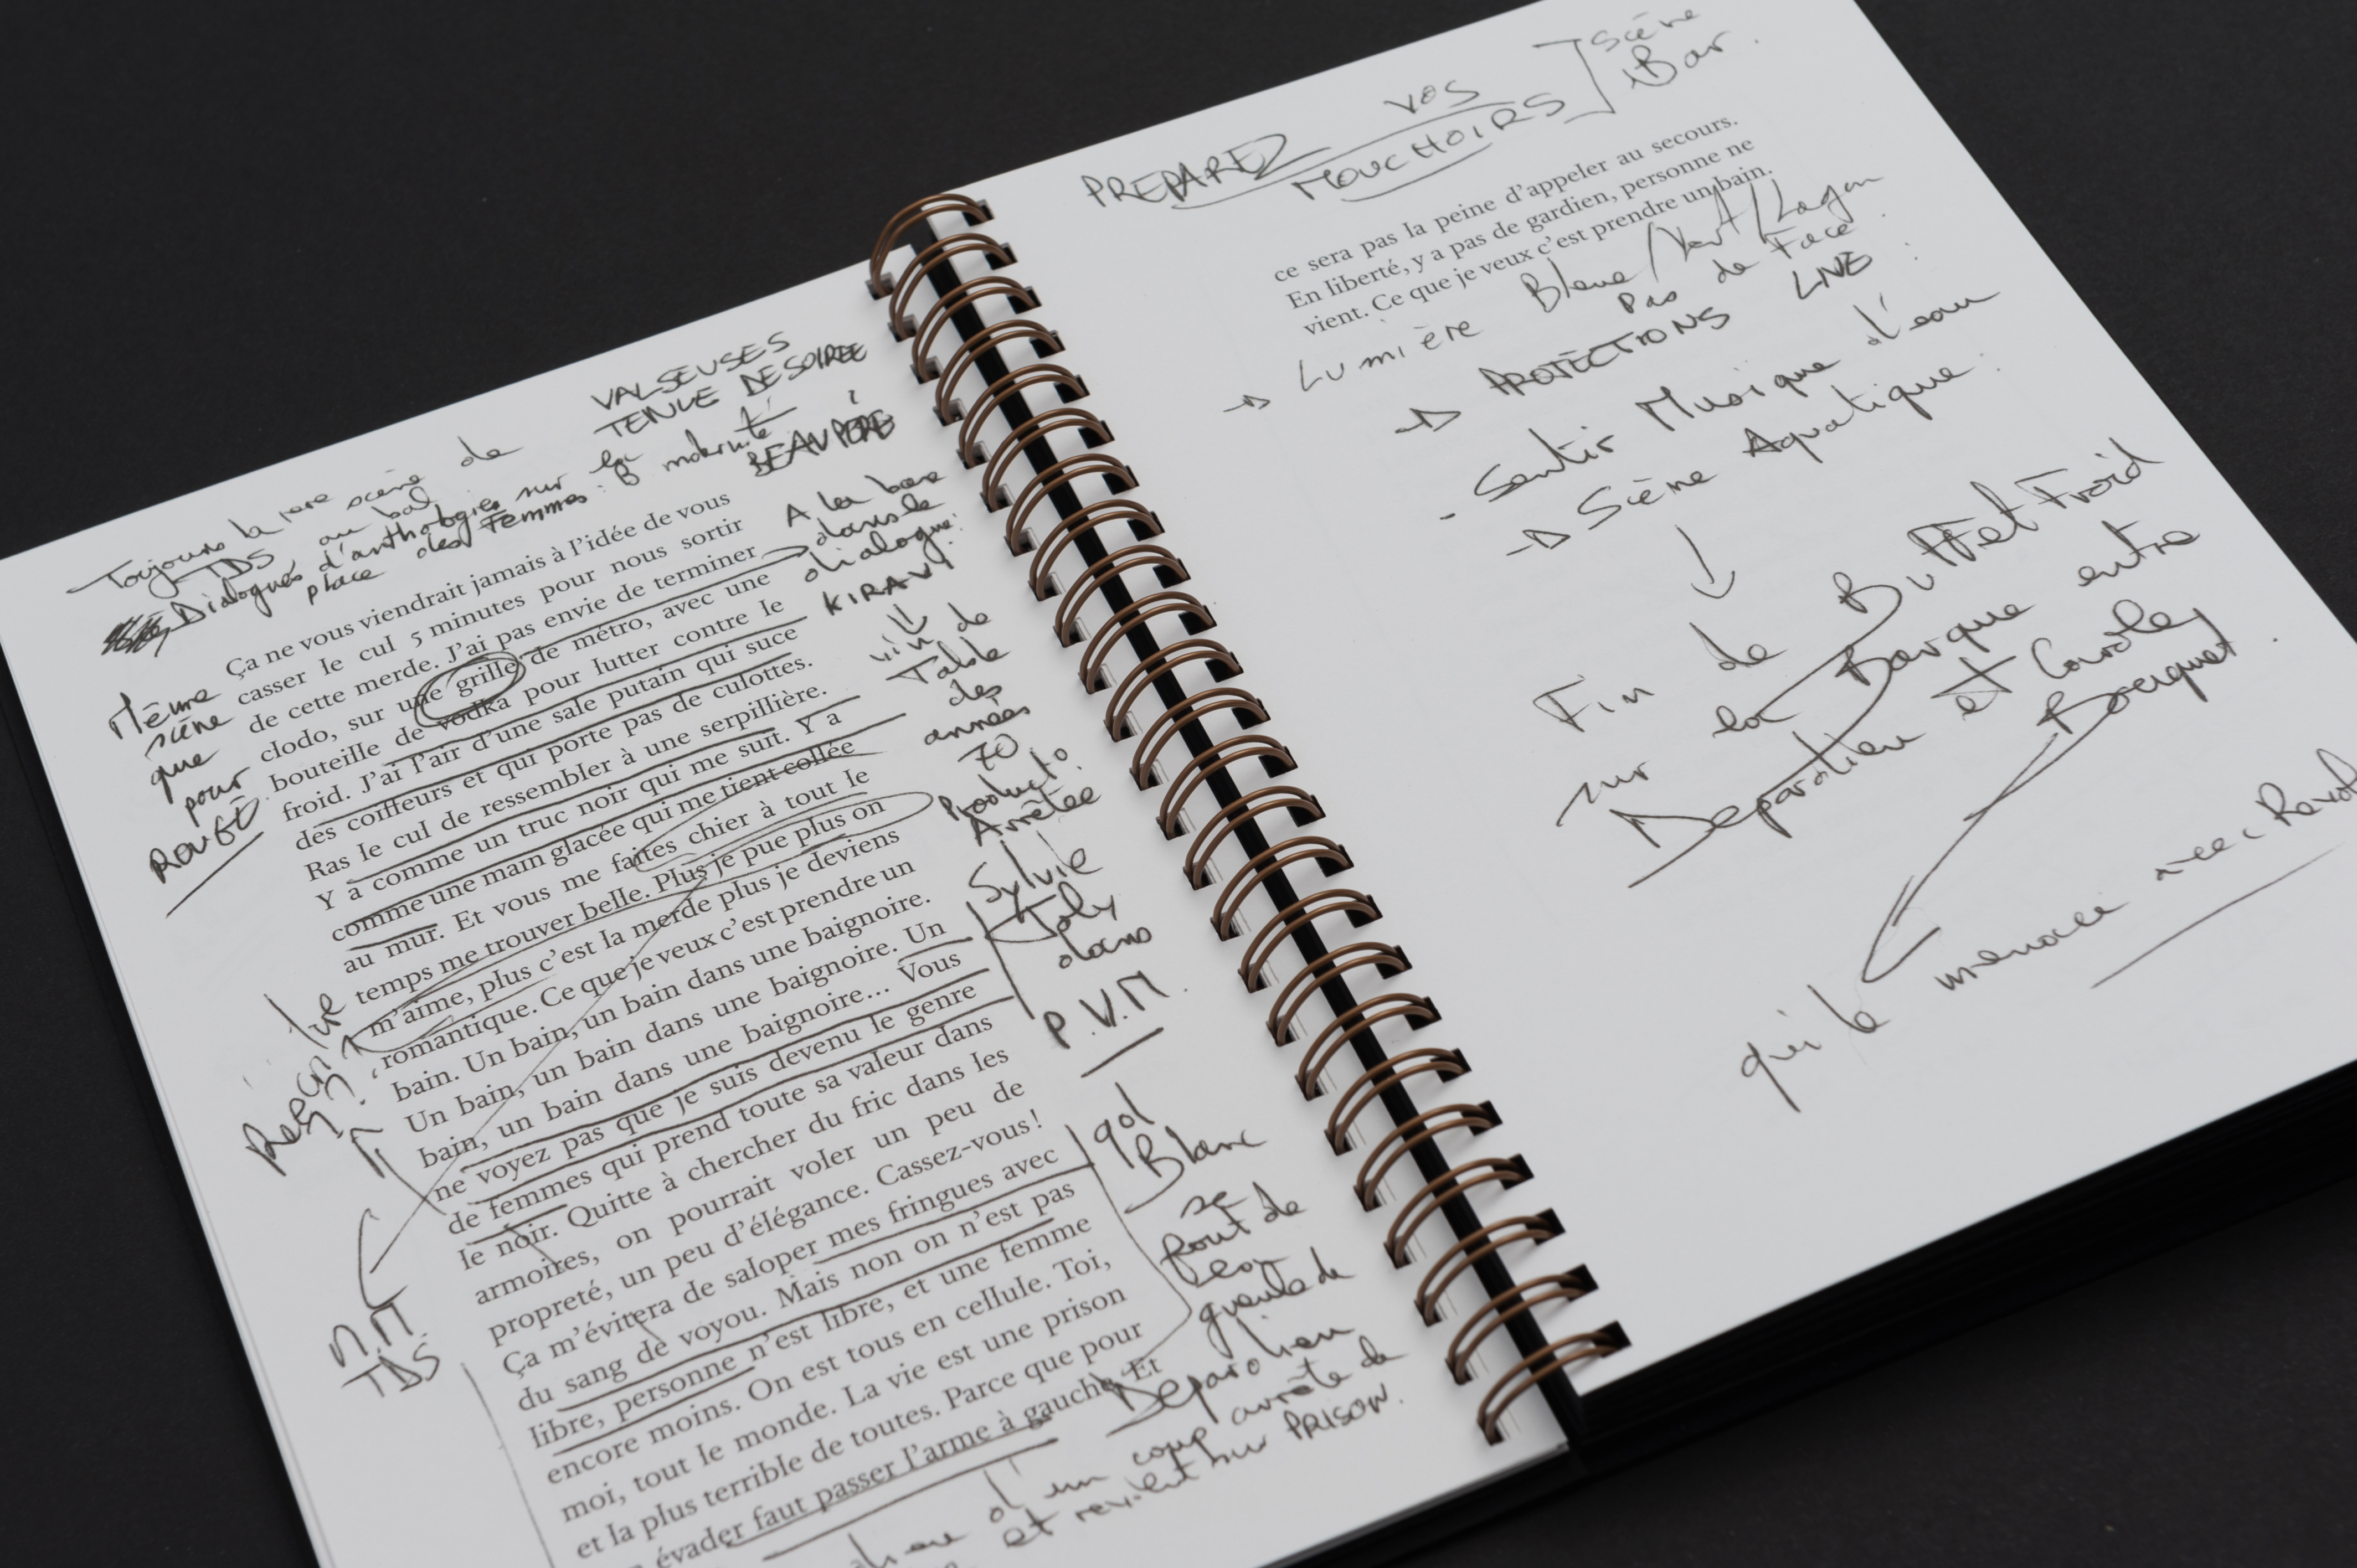 VALSEUSES
TENUE DE SOIREE
BEAU PÈRE
Toujours la 1ere scène de
TDS au bal
Dialogues d'anthologies sur la maternité
place des Femmes :
Ça ne vous viendrait jamais à l'idée de vous
casser le cul 5 minutes pour nous sortir
de cette merde. J'ai pas envie de terminer
clodo, sur une grille de métro, avec une
bouteille de vodka pour lutter contre le
froid. J'ai l'air d'une sale putain qui suce
des coiffeurs et qui porte pas de culottes.
Ras le cul de ressembler à une serpillière.
Y a comme un truc noir qui me suit. Y a
comme une main glacée qui me tient collée
au mur. Et vous me faites chier à tout le
temps me trouver belle. Plus je pue plus on
m'aime, plus c'est la merde plus je deviens
romantique. Ce que je veux c'est prendre un
bain. Un bain, un bain dans une baignoire.
Un bain, un bain dans une baignoire. Un
bain, un bain dans une baignoire... Vous
ne voyez pas que je suis devenu le genre
de femmes qui prend toute sa valeur dans
le noir. Quitte à chercher du fric dans les
armoires, on pourrait voler un peu de
propreté, un peu d'élégance. Cassez-vous !
Ça m'évitera de saloper mes fringues avec
du sang de voyou. Mais non on n'est pas
libre, personne n'est libre, et une femme
encore moins. On est tous en cellule. Toi,
moi, tout le monde. La vie est une prison
et la plus terrible de toutes. Parce que pour
évader faut passer l'arme à gauche. Et
Même
scène
que
pour
ROUGE
M.M
TDS
A la base
dans le
dialogue :
KIRAVI
vin de
Table
des
années
70
Producto.
Arrêtée
Sylvie
Joly
dans
P.V.M.
Blanc
se
Fout de
la
gueule de
Depardieu
d'un coup arrête de
et revient sur PRISON.
PREPAREZ VOS
MOUCHOIRS
Scène
Bar.
ce sera pas la peine d'appeler au secours.
En liberté, y a pas de gardien, personne ne
vient. Ce que je veux c'est prendre un bain.
→ Lumière Bleue / Vert / Lagon
Pas de Face
→ PROJECTIONS LIVE
- Sentir Musique d'eau
→ Scène Aquatique.
↓
Fin de Buffet Froid
sur la Barque entre
Depardieu et Carole
Bouquet.
qui le menace avec